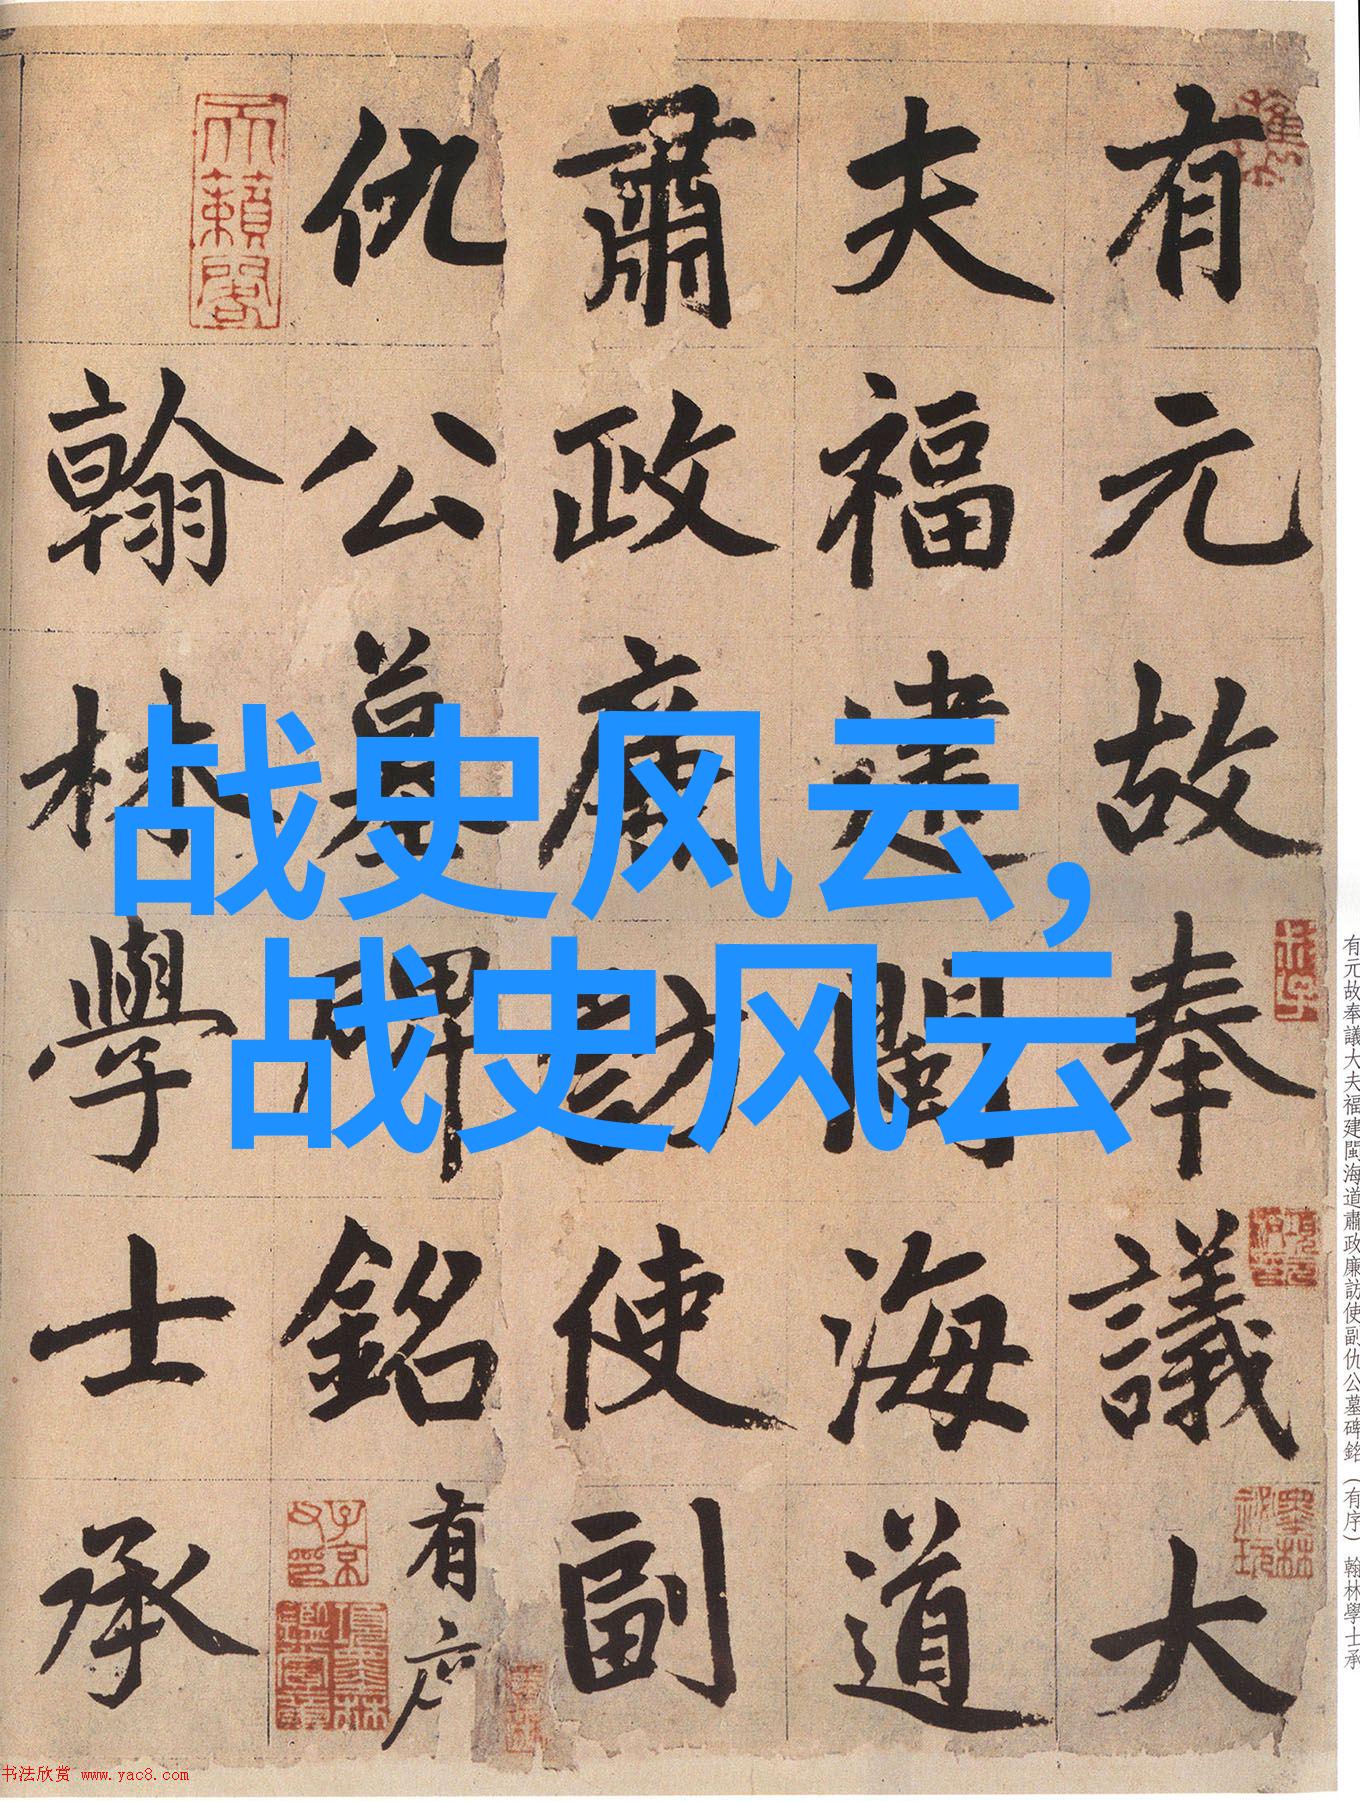 有元故奉議大
夫福建閩海道
肅政廉訪使副
仇公墓碑銘有序
翰林學士承
战史风云,
战史风云
天籟閣
子京父印
項元汴印
墨林祕玩
有元故奉議大夫福建閩海道肅政廉訪使副仇公墓碑銘(有序) 翰林學士承
书法欣赏 www.yac8.com